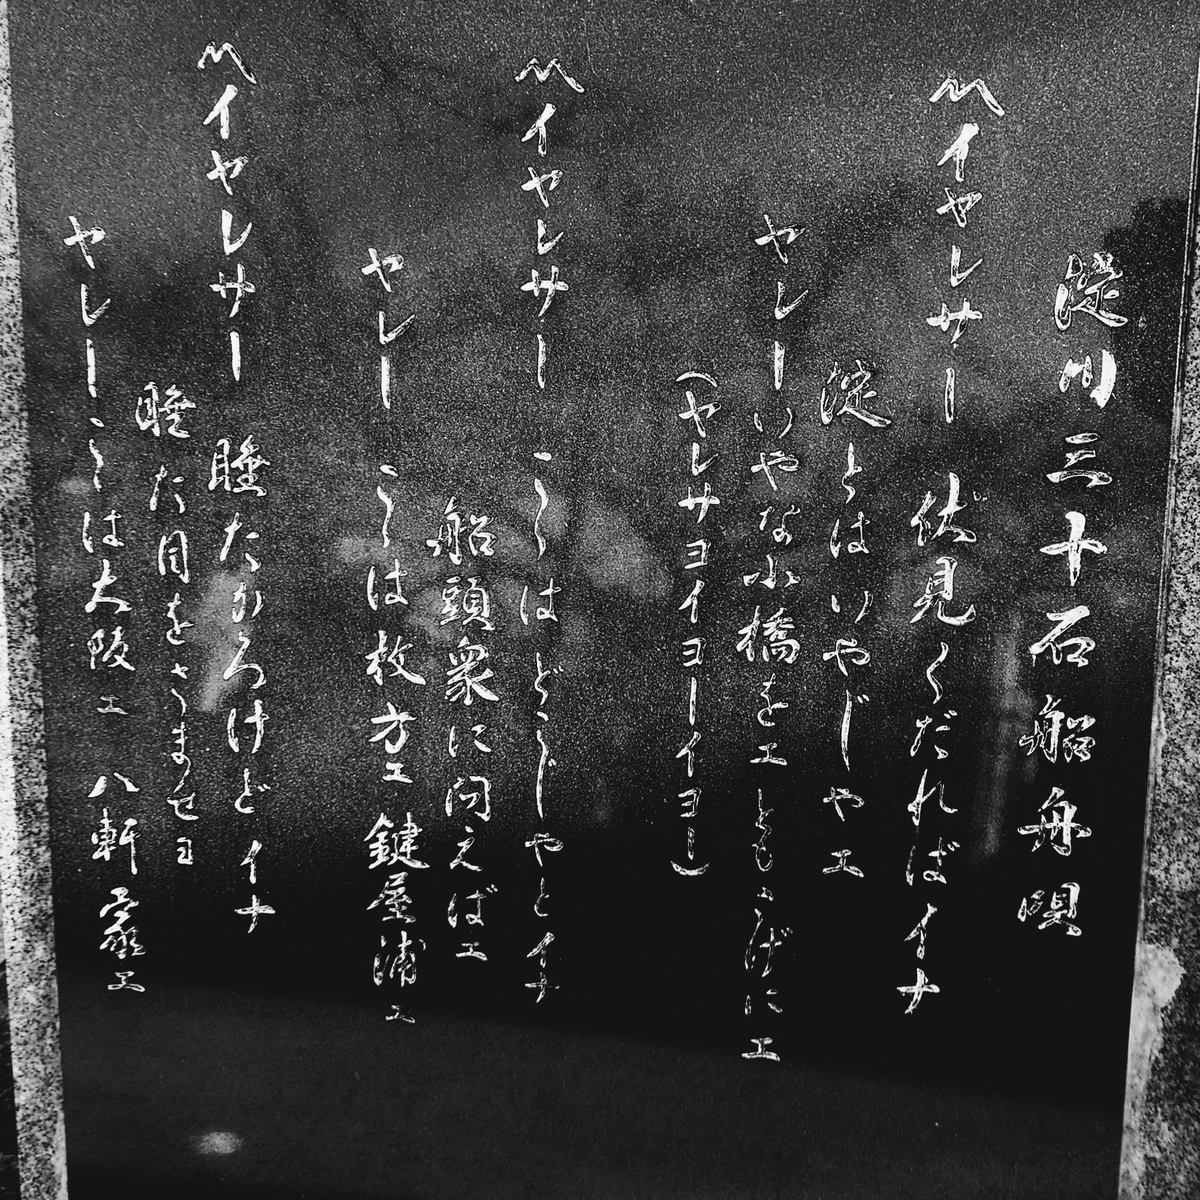 淀川三十石船舟唄
〽イヤレサー 伏見くだれば イナ
淀とは いやじゃエ
ヤレーいやな小橋をエ ともさげにエ
(ヤレサヨイヨーイヨー)
〽イヤレサー こゝは どこじゃと イナ
船頭衆に問えばエ
ヤレー こゝは枚方エ 鍵屋浦エ
〽イヤレサー 睡たかろけど イナ
睡た目をさませヨ
ヤレー こゝは大阪エ 八軒家エ